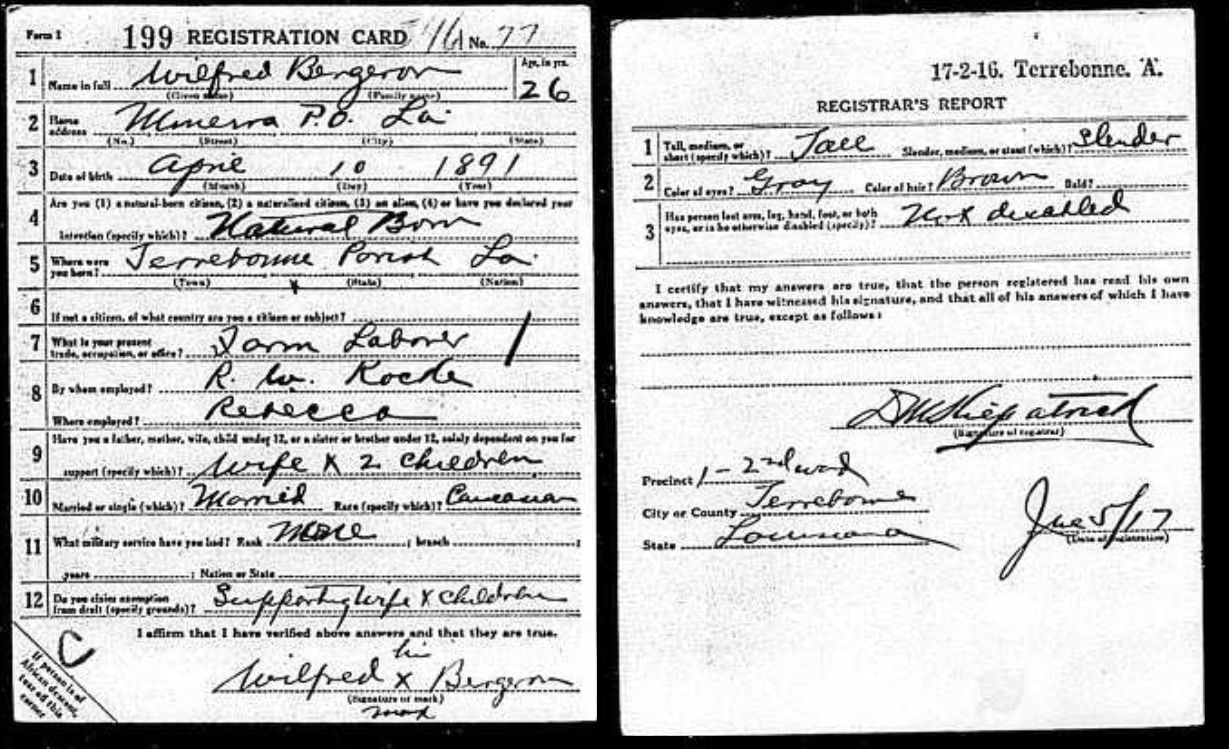 Form 1 199 REGISTRATION CARD No. 77
1 Name in full Wilfred Bergeron Age, in yrs. 26
(Given name) (Family name)
2 Home address Minerva P.O. La
(No.) (Street) (City) (State)
3 Date of birth April 10 1891
(Month) (Day) (Year)
Are you (1) a natural-born citizen, (2) a naturalized citizen, (3) an alien, (4) or have you declared your
4 intention (specify which)? Natural Born
5 Where were you born? Terrebonne Parish La
(Town) (State) (Nation)
6 If not a citizen, of what country are you a citizen or subject?
7 What is your present trade, occupation, or office? Farm Laborer
8 By whom employed? R. W.
Where employed? Rebecca
9 Have you a father, mother, wife, child under 12, or a sister or brother under 12, solely dependent on you for
support (specify which)? Wife & 2 children
10 Married or single (which)? Married Race (specify which)? Caucasian
11 What military service have you had? Rank None ; branch ;
years ; Nation or State
12 Do you claim exemption from draft (specify grounds)? Supporting wife & children
I affirm that I have verified above answers and that they are true.
C
his
Wilfred x Bergeron
(Signature or mark)
mark
If person is of African descent, tear off this corner
17-2-16. Terrebonne. A.
REGISTRAR'S REPORT
1 Tall, medium, or short (specify which)? Tall Slender, medium, or stout (which)? Slender
2 Color of eyes? Gray Color of hair? Brown Bald?
3 Has person lost arm, leg, hand, foot, or both eyes, or is he otherwise disabled (specify)? Not disabled
I certify that my answers are true, that the person registered has read his own
answers, that I have witnessed his signature, and that all of his answers of which I have
knowledge are true, except as follows:
Kilpatrick
(Signature of registrar)
Precinct 1 - 2nd ward
City or County Terrebonne
State Louisiana
June 5/17
(Date of registration)